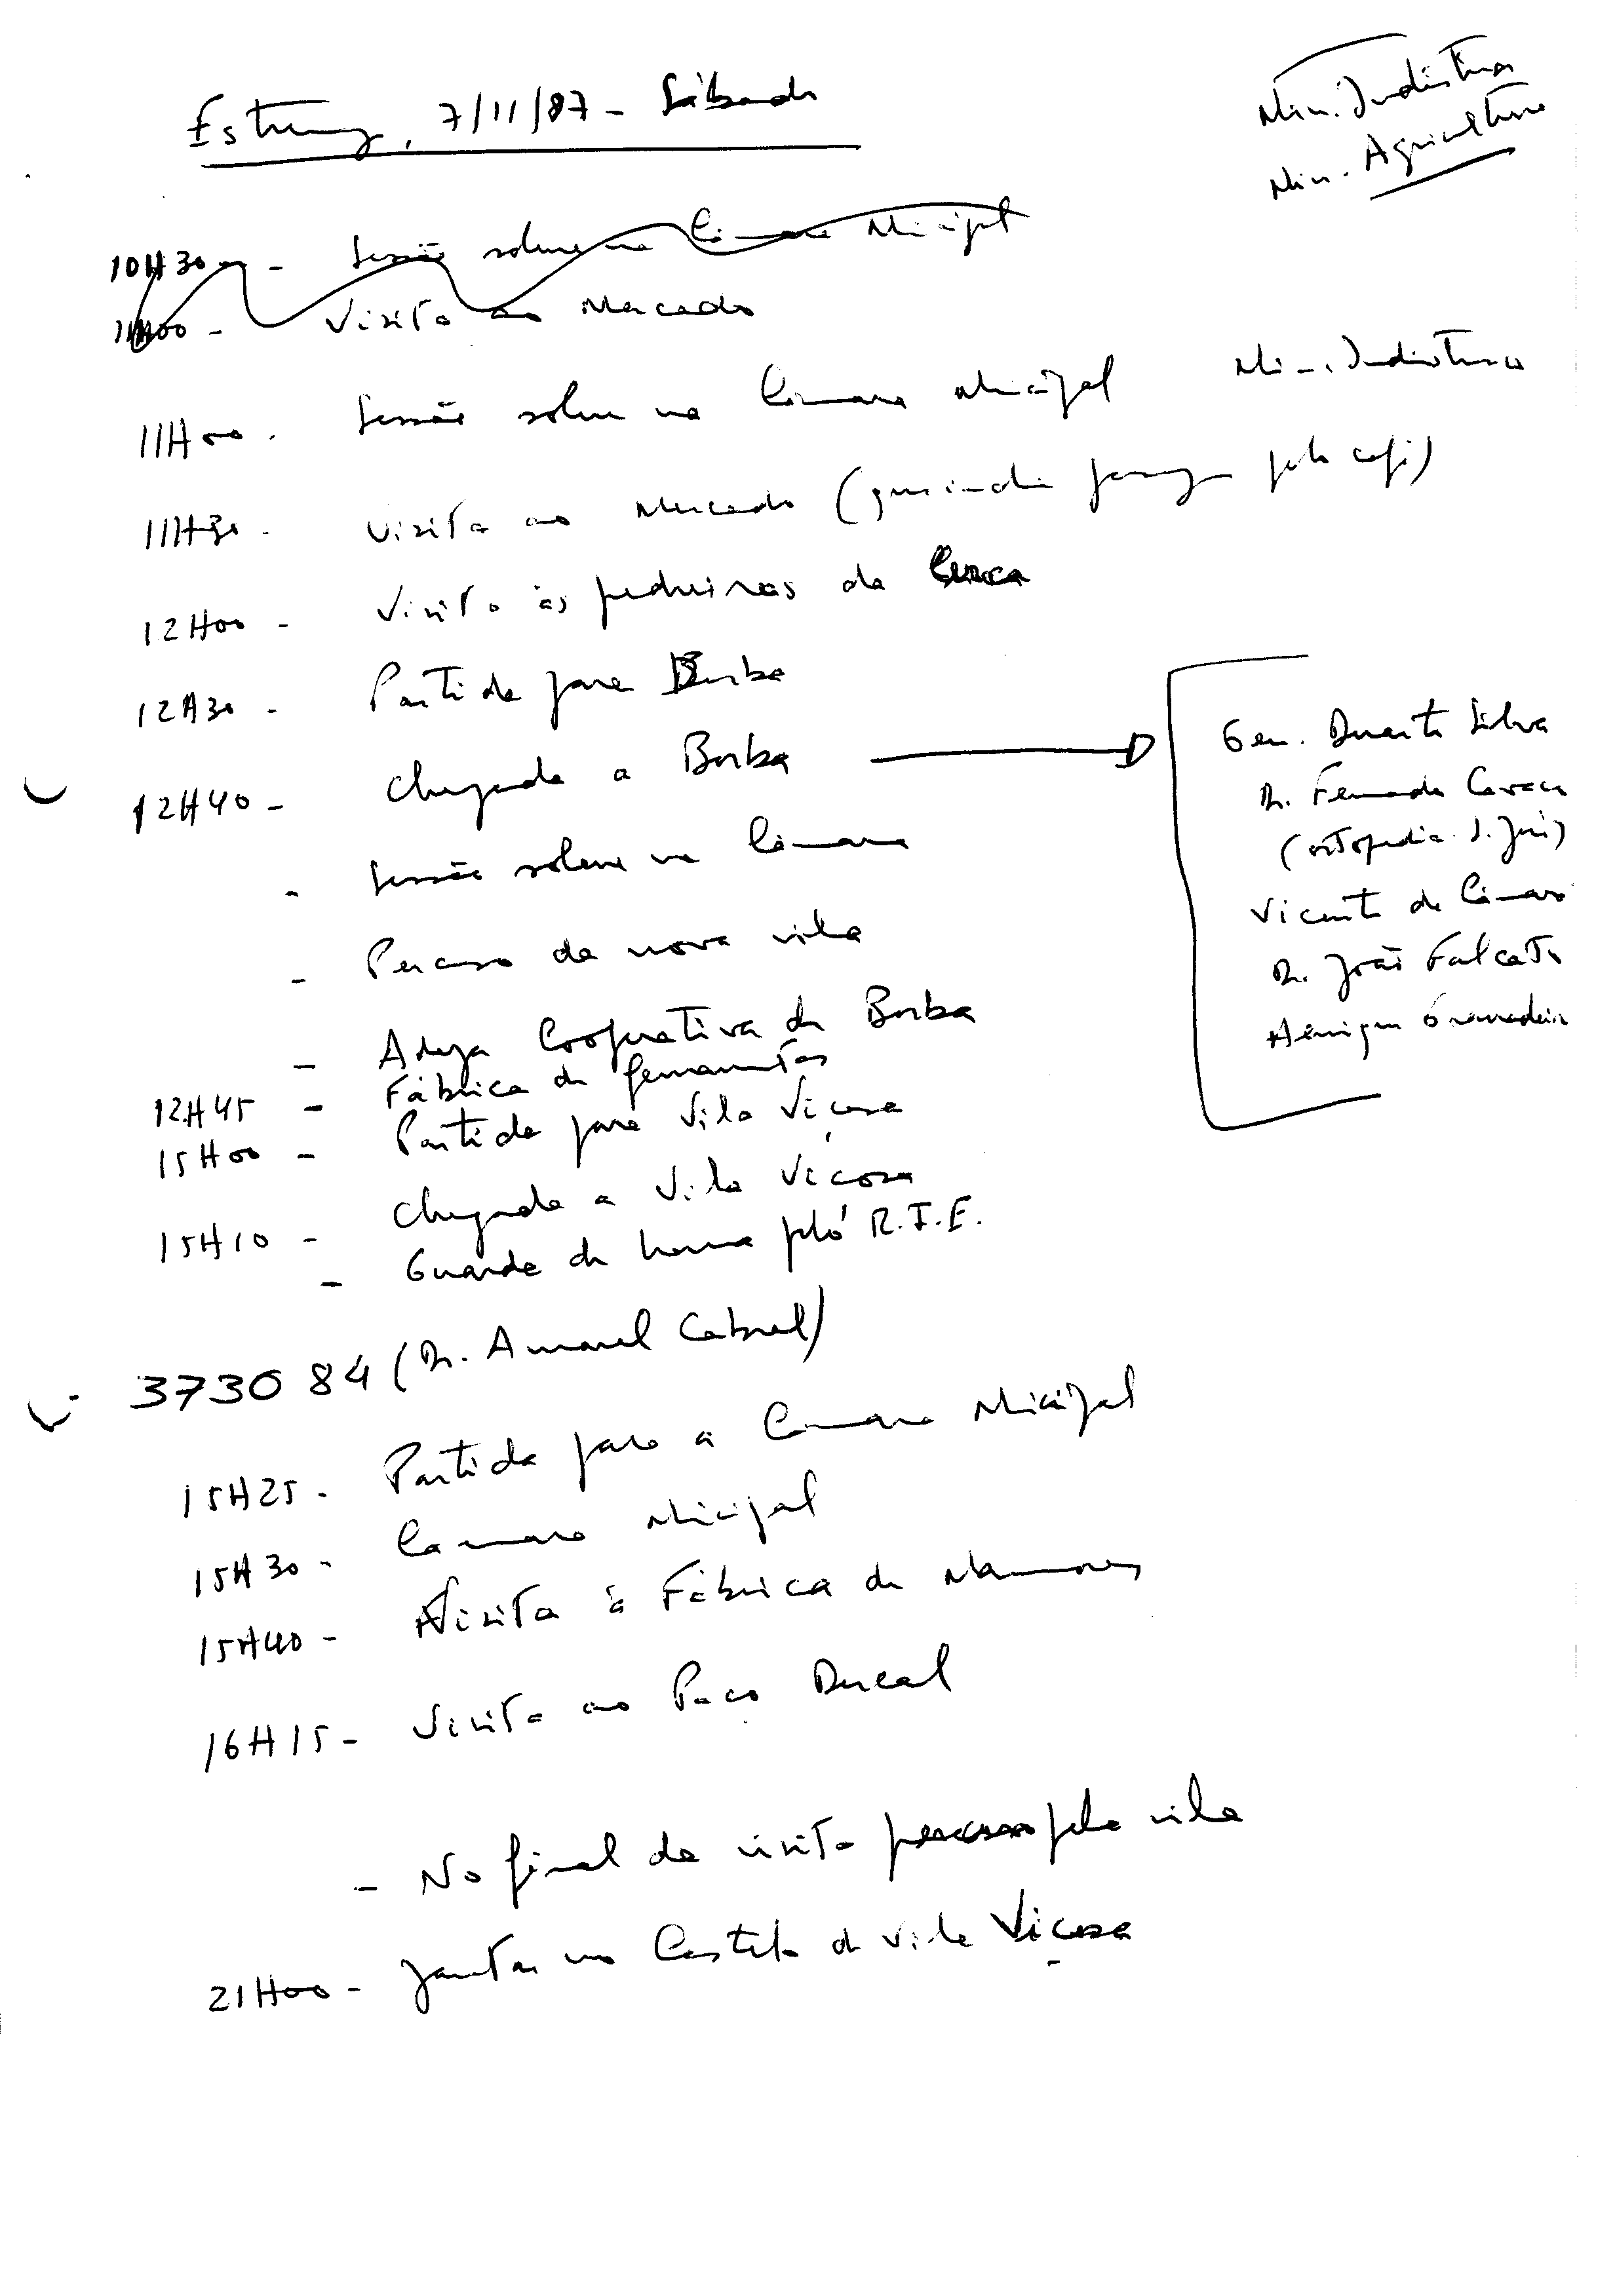 Estremoz, 7/11/87 - Sábado
Min. Indústria
Min. Agricultura
10H30 - Sessão solene na Câmara Municipal
11H00 - Visita ao Mercado
11H00 - Sessão solene na Câmara Municipal Min. Indústria
11H30 - Visita ao Mercado ( pelo café)
12H00 - Visita às pedreiras da Cerca
12H30 - Partida para Borba
12H40 - Chegada a Borba
- Sessão solene na Câmara
- Percurso da nova vila
- Adega Cooperativa de Borba
12H45 - Fábrica de ferramentas
15H00 - Partida para Vila Viçosa
15H10 - Chegada a Vila Viçosa
- Guarda de honra pelo R.I.E.
373084 (Dr. Amaral Cabral)
15H25 - Partida para a Câmara Municipal
15H30 - Câmara Municipal
15H40 - Visita à Fábrica de Mármores
16H15 - Visita ao Paço Ducal
- No final da visita percurso pela vila
21H00 - Jantar no Castelo de Vila Viçosa
Gen. Duarte Silva
Dr. Fernando
(ortopedia S. José)
Vicente da Câmara
Dr. João Falcato
Henrique Granadeiro